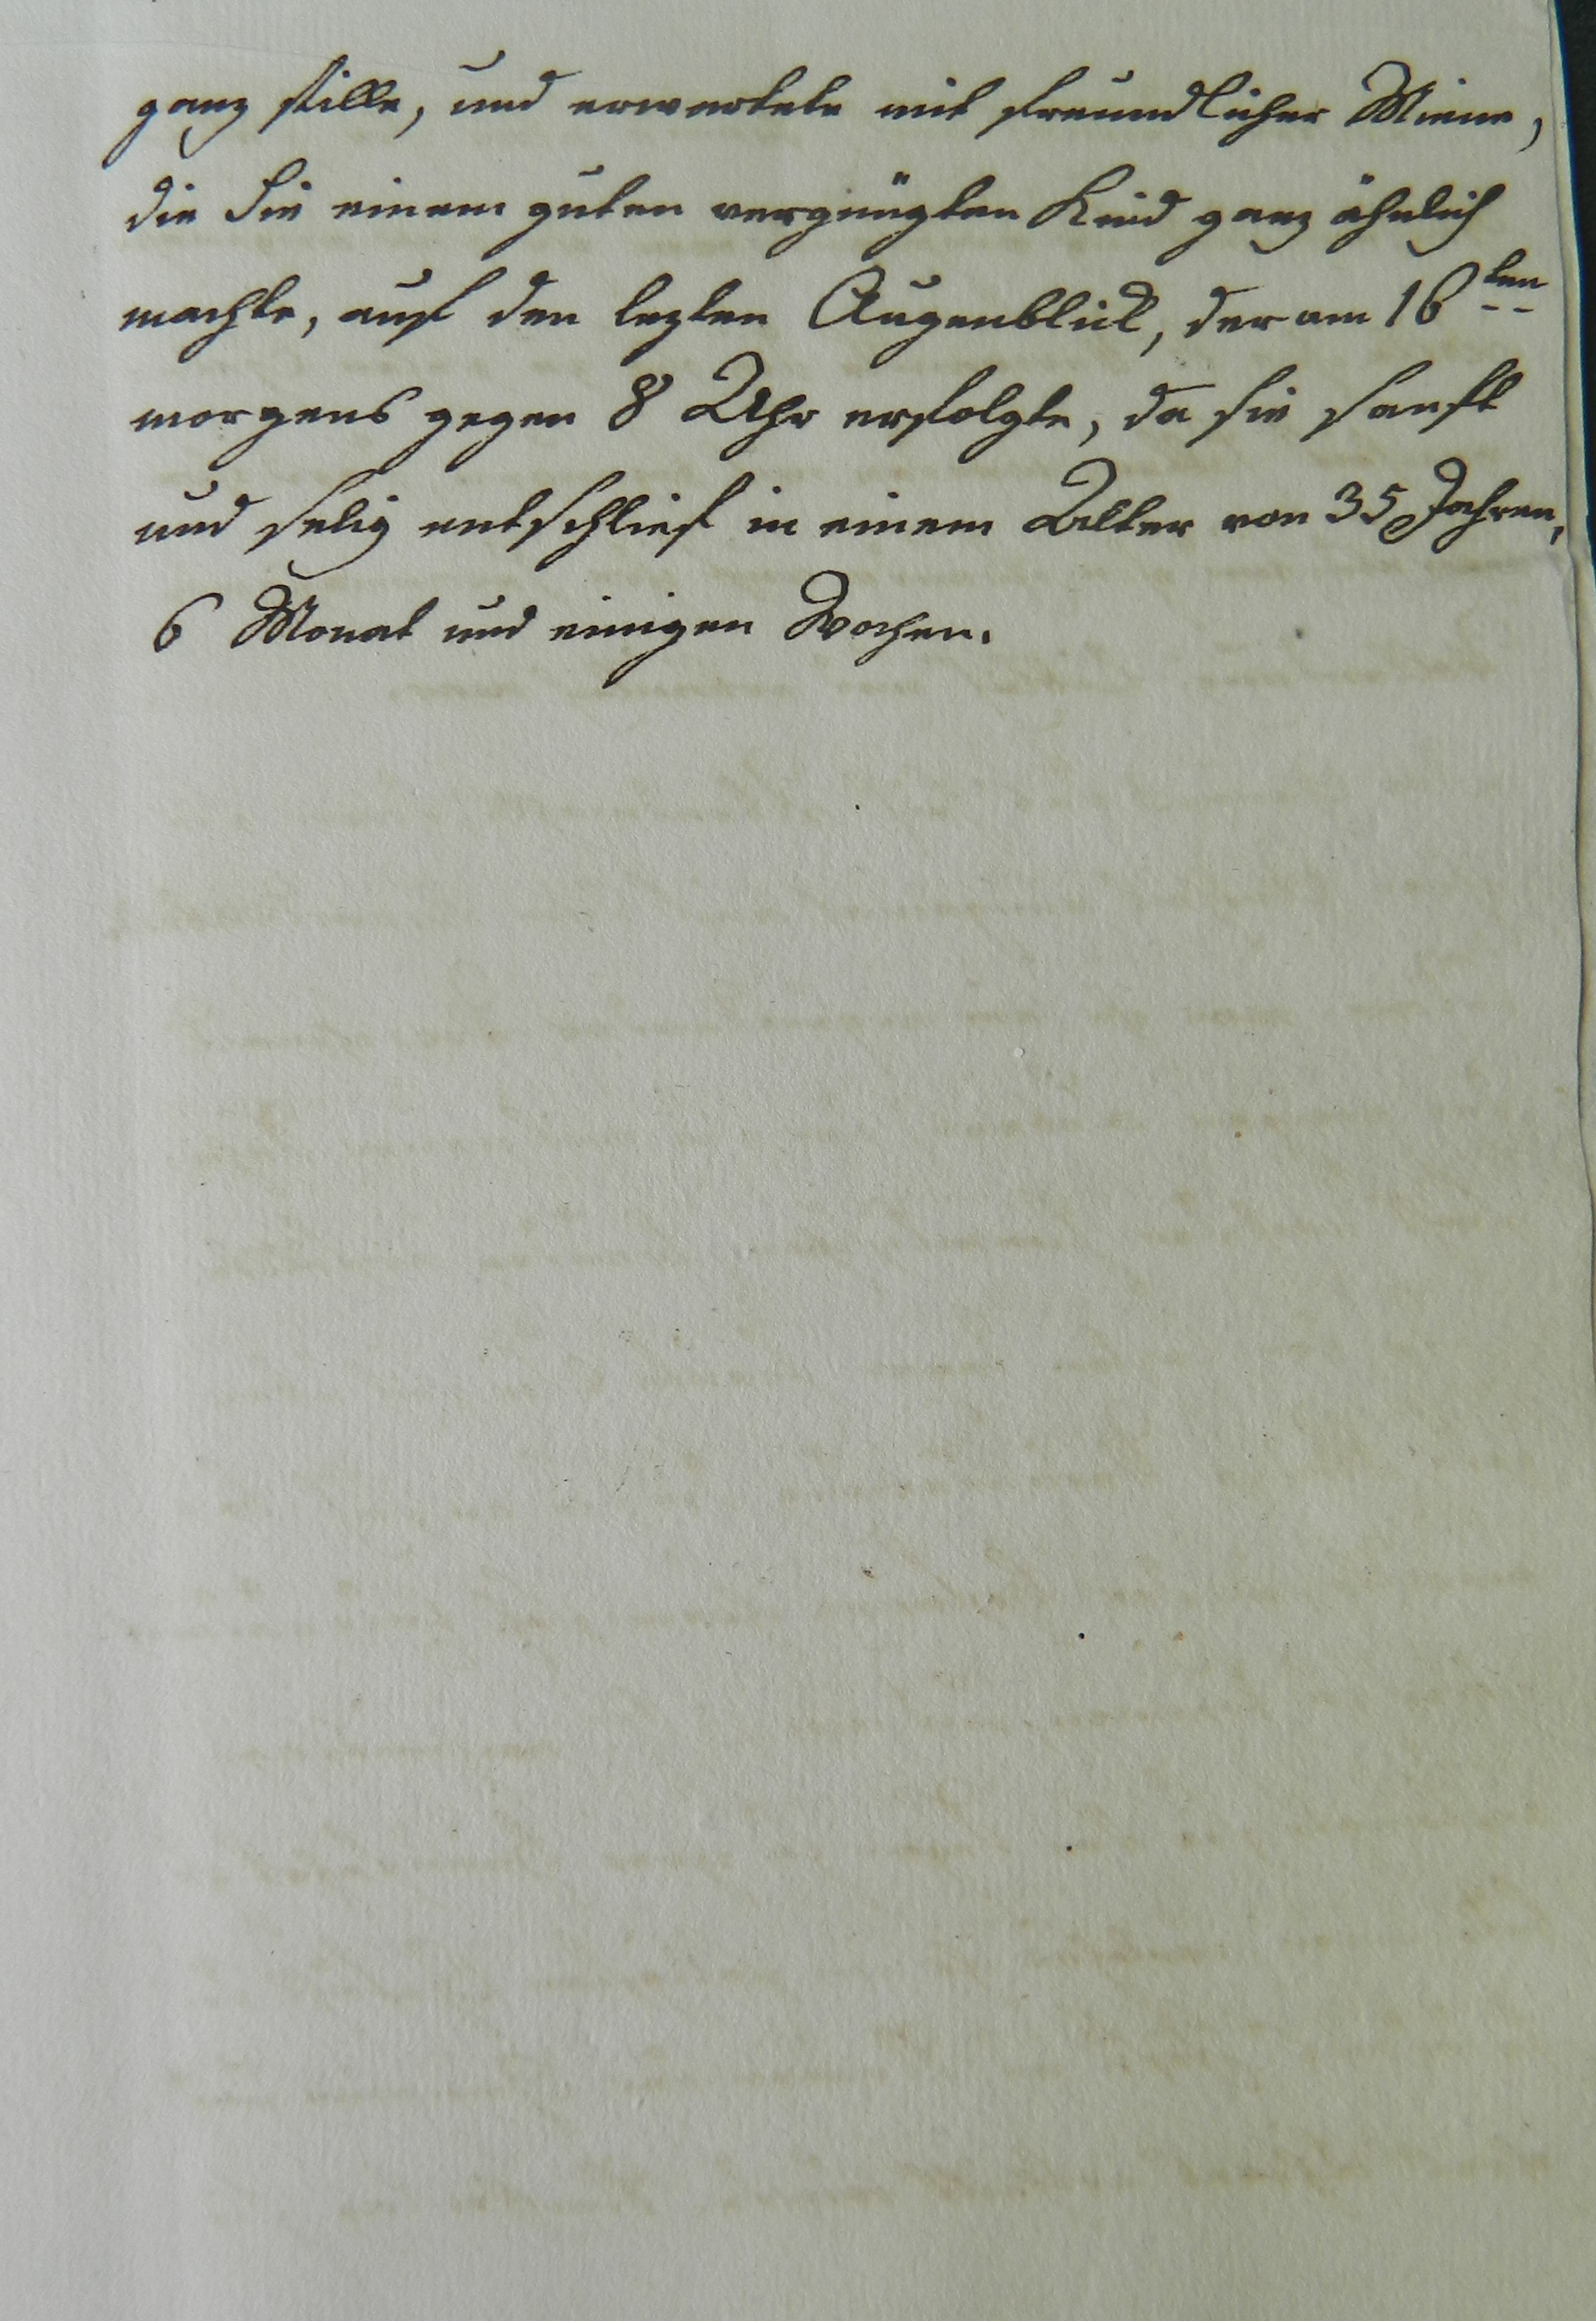 ganz stille, und erwartete mit freundlicher Miene,
die Sie einem guten vergnügten Kind ganz ähnlich
machte, auf den lezten Augenblick, der am 16ten
morgens gegen 8 Uhr erfolgte, da sie sanft
und selig entschlief in einem Alter von 35 Jahren,
6 Monat und einigen Wochen.